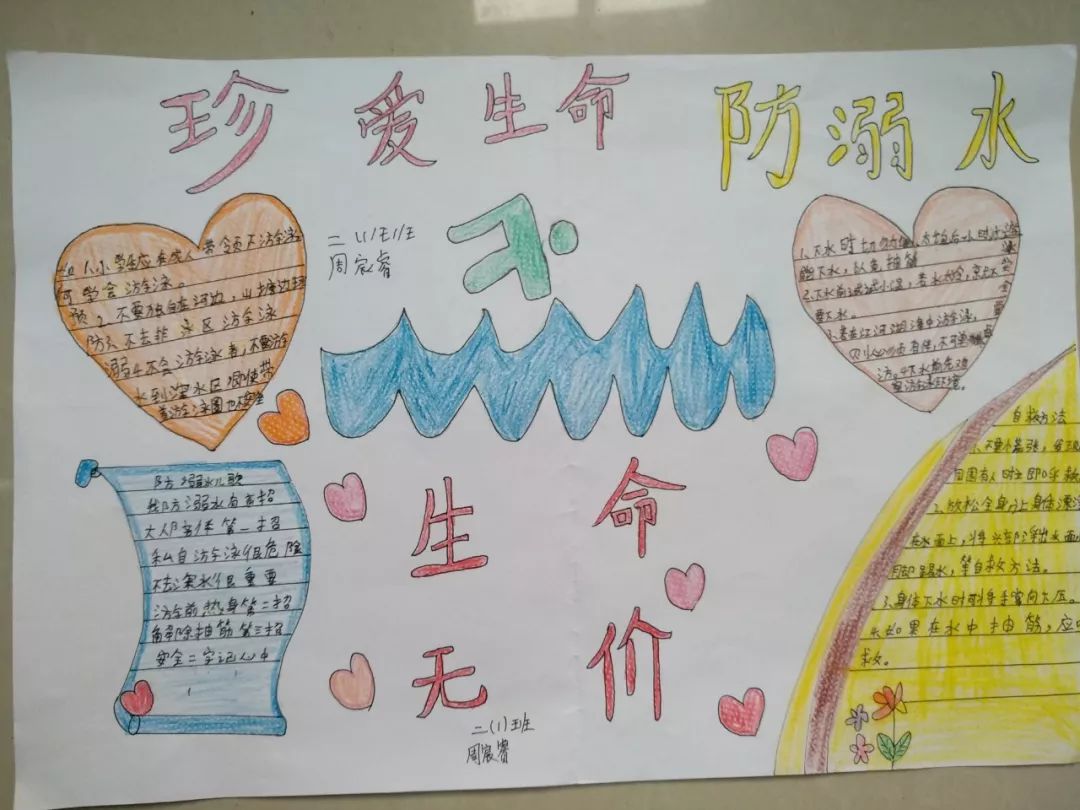 珍爱生命 防溺水
二(1)班
周宸睿
如何预防溺水
1.小学生应有成人带领下游泳
学会游泳。
2.不要独自在河边、山塘边玩
3.不去非泳区游泳
4.不会游泳者,不要游
到深水区即使带
着游泳圈也不安全
1.下水时切勿
饱下水,以免抽筋
2.下水前试试小温,若水太冷,就不
要下水。
3.若在江、河、湖、海中游泳,
4.下水前先观
察游泳环境。
防溺水儿歌
我防溺水有高招
大人陪伴第一招
私自游泳很危险
不去深水很重要
游泳前热身第二招
解除抽筋第三招
安全二字记心中
生命
无价
二(1)班
周宸睿
自救方法
1.不要心慌张,发现
周围有人时立即呼救
2.放松全身,让身体漂浮
在水面上,将头部浮出水面
用脚踢水,等自救方法。
3.身体下水时可将手掌向下压。
4.如果在水中抽筋,应
救。